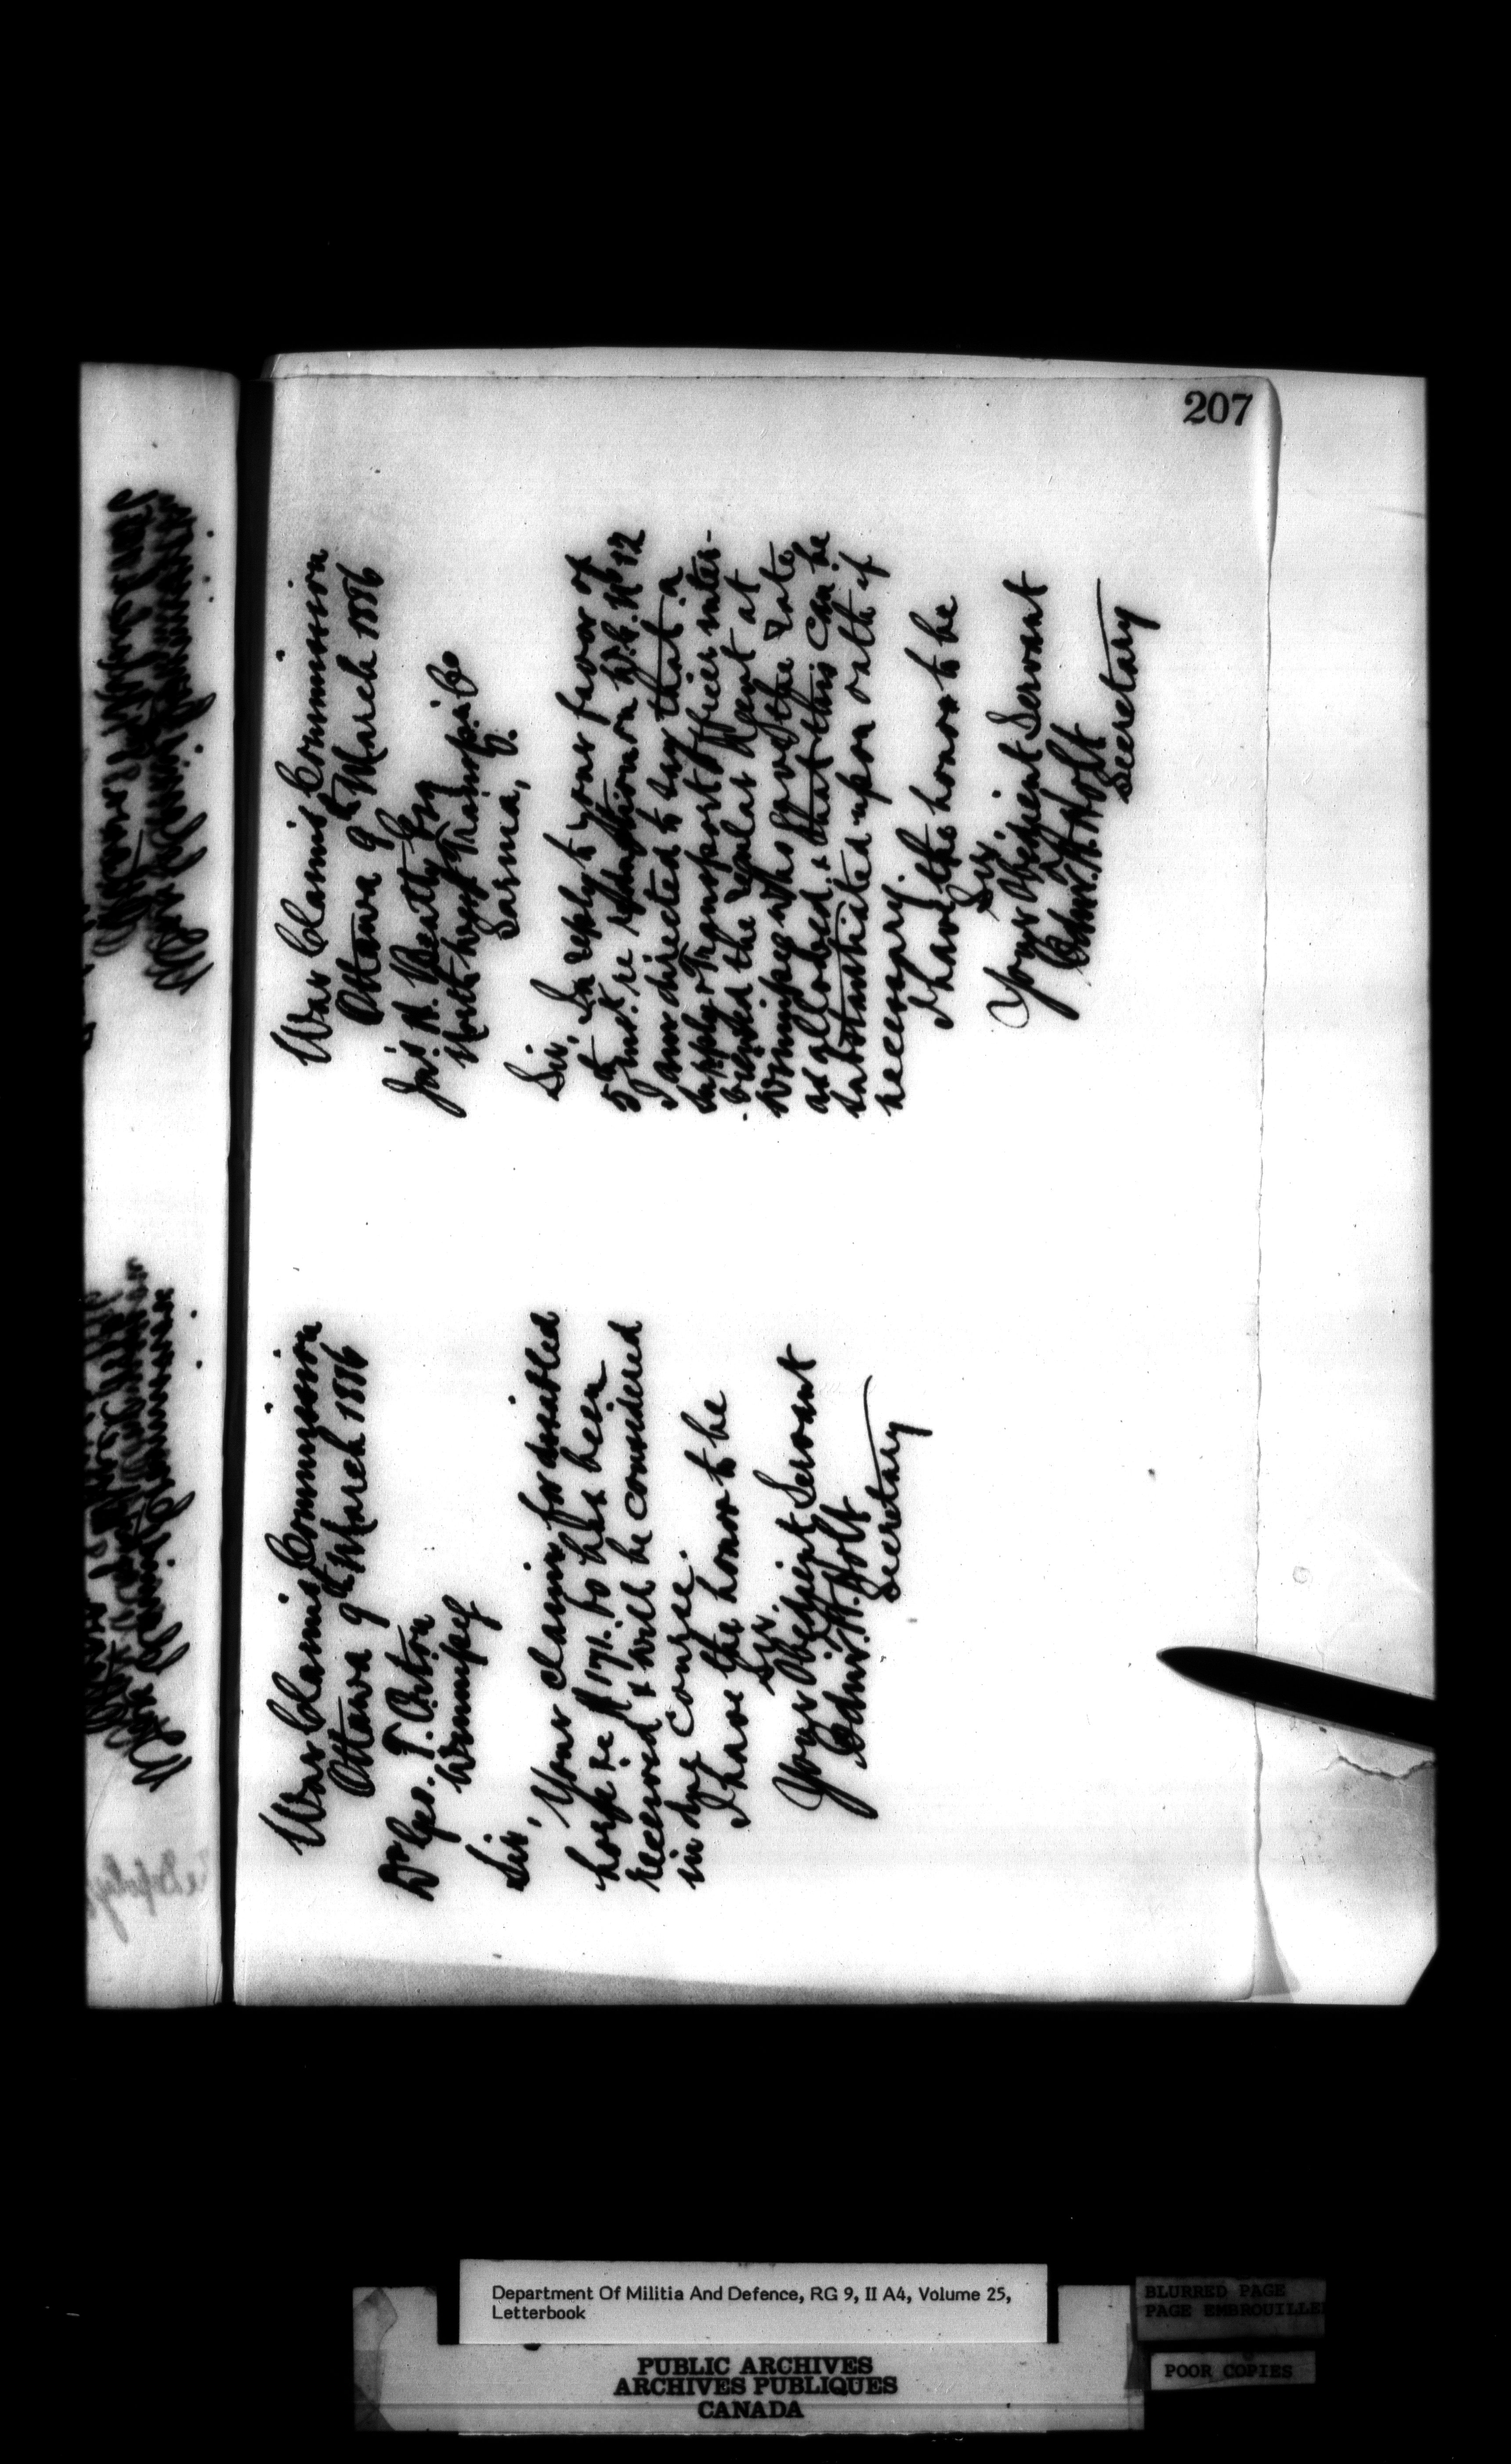 207
War Claims Commission
Ottawa 9th March 1886
Dr Geo. T. Orton
Winnipeg
Sir,
Your claim for disabled
horse re $171.50 has been
received & will be considered
in due course.
I have the honor to be
Sir.
Your Obedient Servant
Edmr. A. Holt
Secretary
War Claims Commission
Ottawa 9th March 1886
Jas. H. Beatty Esq
North West Transp. Co
Sarnia, O.
Sir, In reply to your favor of
5th inst. re W.C. No 12
I am directed to say that a
Supply & Transport Officer inter-
viewed the regular Agent at
Winnipeg who gave the rate
as allowed, & that this can be
substantiated upon oath if
necessary.
I have the honor to be
Sir,
Your Obedient Servant
Edmr. A. Holt
Secretary
Department Of Militia And Defence, RG 9, II A4, Volume 25,
Letterbook
PUBLIC ARCHIVES
ARCHIVES PUBLIQUES
CANADA
BLURRED PAGE
PAGE EMBROUILLEE
POOR COPIES